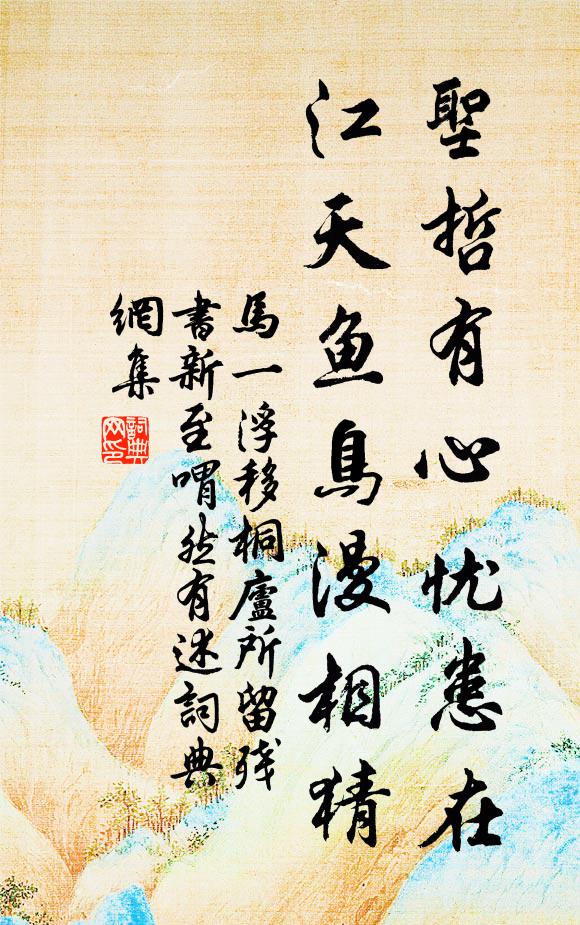 聖哲有心忧患在
江天鱼鳥漫相猜
馬一浮移桐廬所留残
書新至喟然有述詞典
網集
詞典
网印